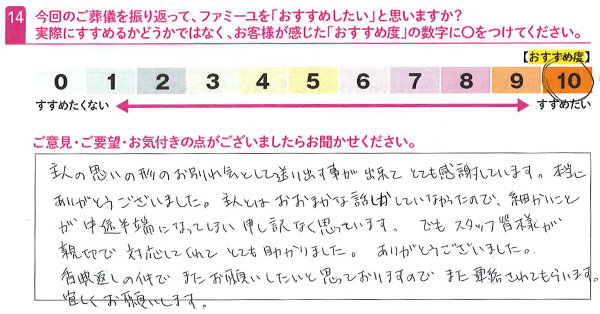 14 今回のご葬儀を振り返って、ファミーユを「おすすめしたい」と思いますか?
実際にすすめるかどうかではなく、お客様が感じた「おすすめ度」の数字に〇をつけてください。
【おすすめ度】
0 1 2 3 4 5 6 7 8 9 10
すすめたくない すすめたい
ご意見・ご要望・お気付きの点がございましたらお聞かせください。
主人の思いの形のお別れ会として送り出す事が出来てとても感謝しています。本当に
ありがとうございました。主人とはおおまかな話しかしていなかったので、細かいこと
が中途半端になってしまい申し訳なく思っています。でもスタッフ皆様が
親切で対応してくれてとても助かりました。ありがとうございました。
香典返しの件でまたお願いしたいと思っておりますのでまた連絡させてもらいます。
宜しくお願いします。